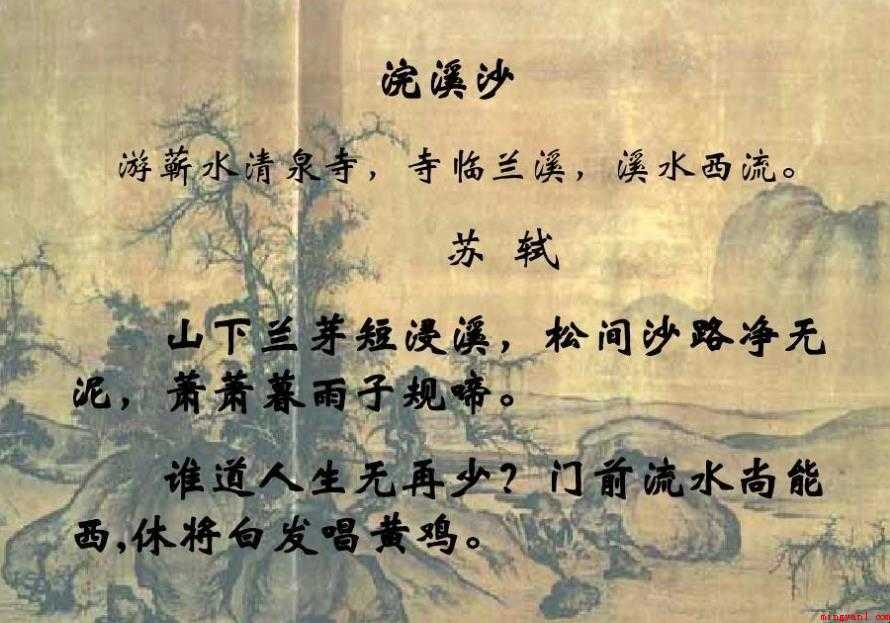 浣溪沙
游蕲水清泉寺，寺临兰溪，溪水西流。
苏 轼
山下兰芽短浸溪，松间沙路净无
泥，萧萧暮雨子规啼。
谁道人生无再少？门前流水尚能
西,休将白发唱黄鸡。
mingyan1.com